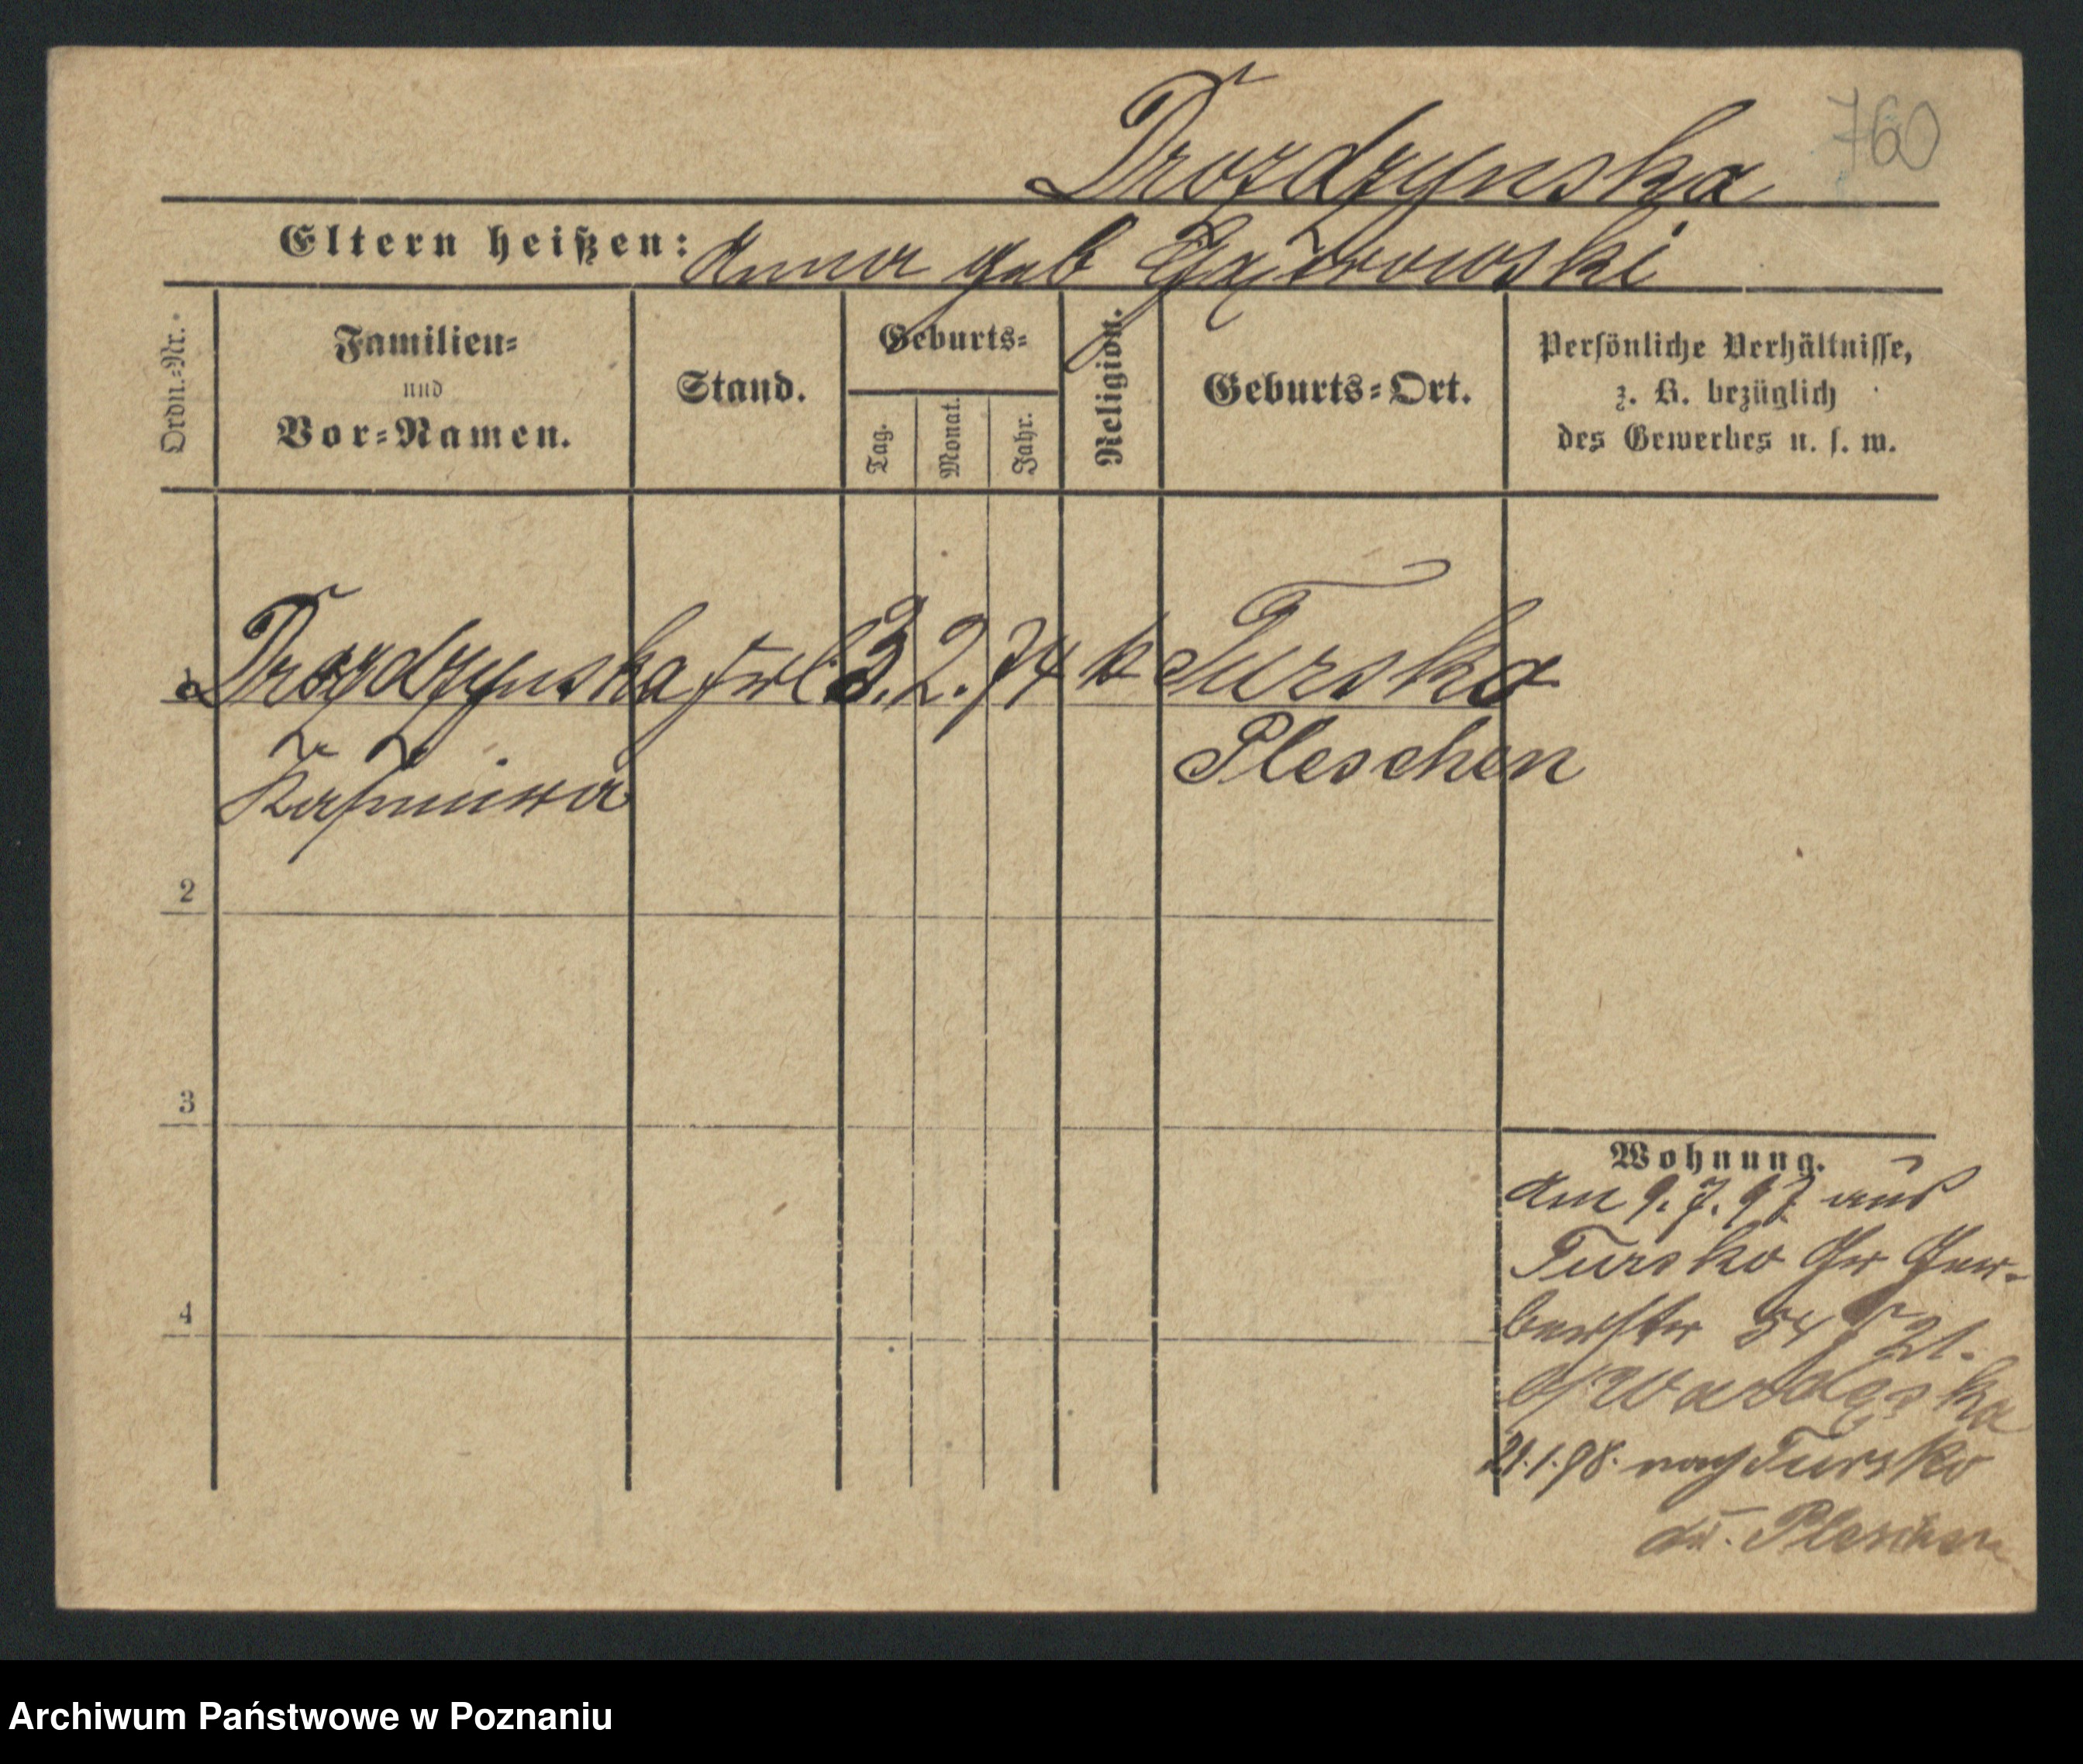 760
Drozdzynska
Eltern heißen: Anna geb
Ordn.-Nr.
Familien-
und
Vor-Namen.
Stand.
Geburts-
Tag.
Monat.
Jahr.
Religion.
Geburts-Ort.
Persönliche Verhältnisse,
z. B. bezüglich
des Gewerbes u. s. w.
1 Drozdzynska Frl. 3. 2. 74 k Tursko
Pleschen
Kasimira
2
3
4
Wohnung.
Am 9.7.97 aus
Tursko Gr Ger-
berstr 54 21.
21.1.98. nach Tursko
Pleschen
Archiwum Państwowe w Poznaniu